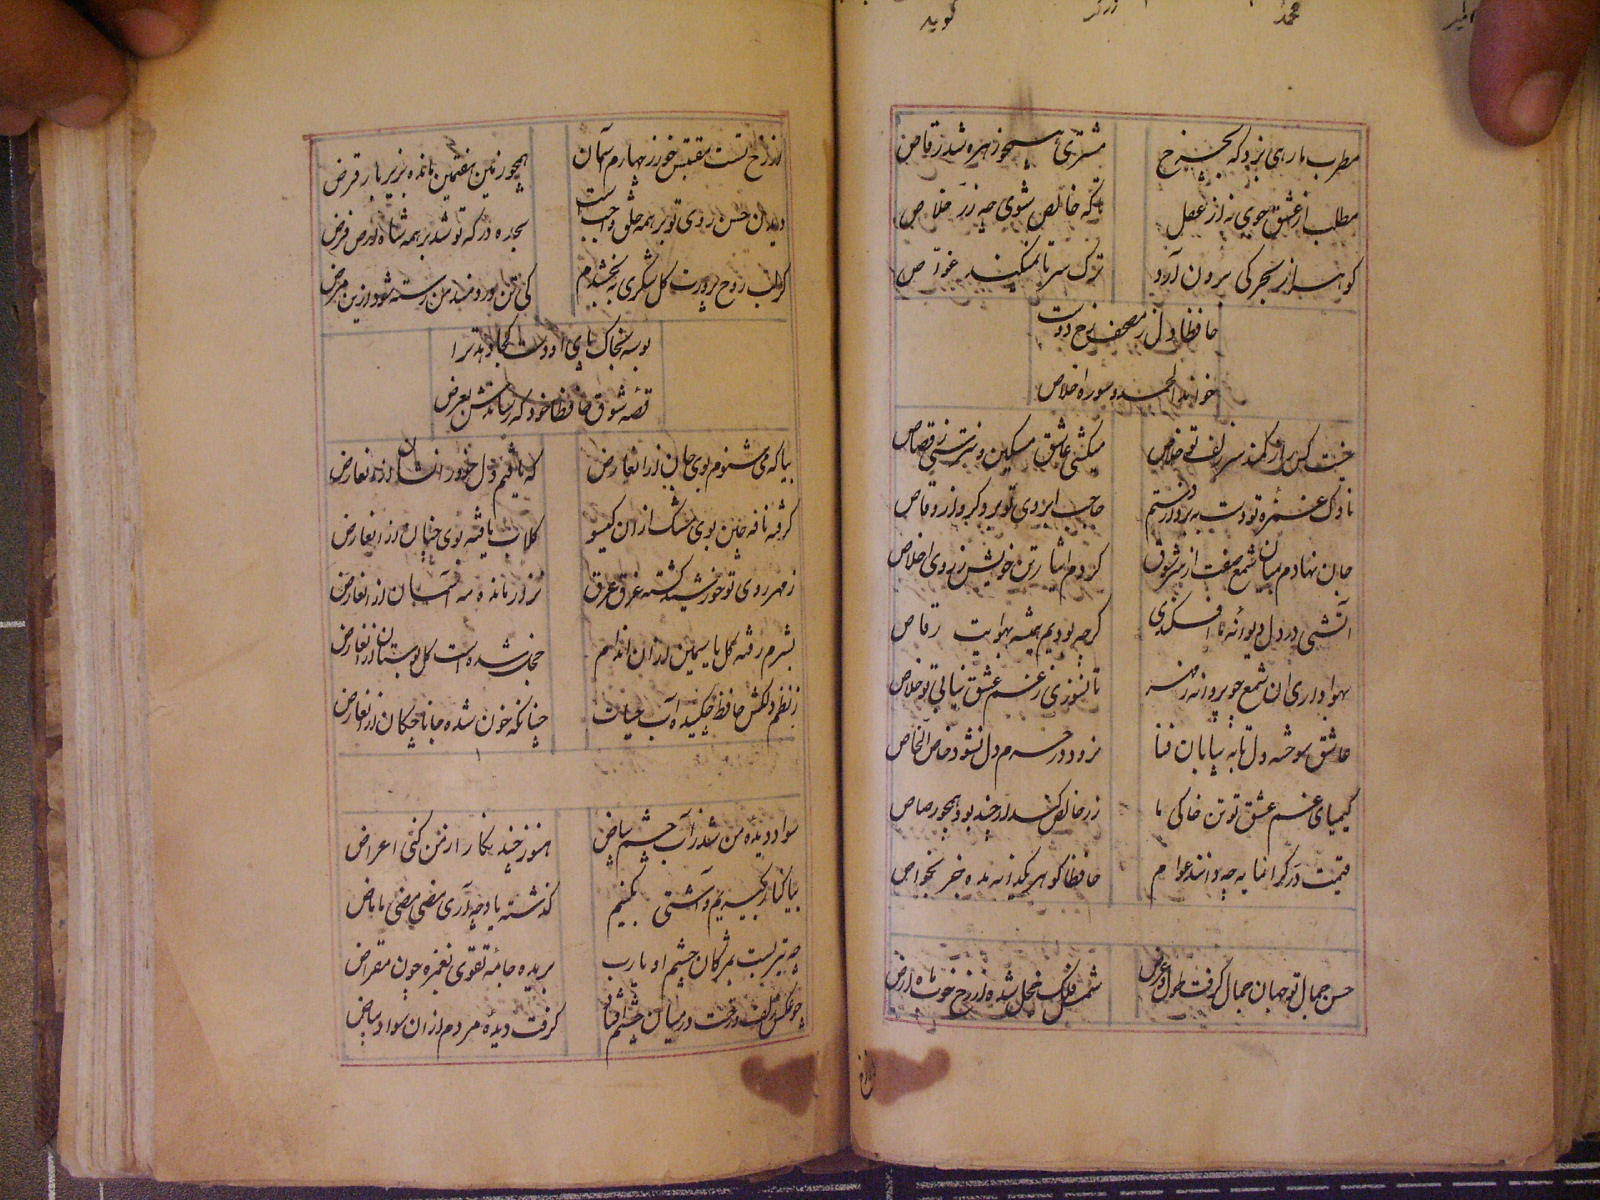 گوید محمد
مطرب ما رهی بزد که بچرخ مشتری همچو زهره شد رقاص
مطلب از عشق جوی نه از عقل تا که خالص شوی چه زر خلاص
گوهر از بحر کی برون آرد ترک سر تا نمیکند غواص
حافظ اول ز مصحف رخ دوست
خواند الحمد و سوره اخلاص
نیست کس را ز کمند سر زلف تو خلاص میکشی عاشق مسکین و نترسی ز قصاص
ناوک غمزه تو دست ببرد از رستم حاجب ابروی تو برده گرو از وقاص
جان نهادم بمیان شمع صفت از سر شوق کردم ایثار تن خویش ز روی اخلاص
آتشی در دل دیوانه ما افکندی گرچه بودیم همیشه بهوایت رقاص
بهواداری آن شمع چو پروانه تا نسوزی ز غم عشق نیابی تو خلاص
عاشق سوخته دل تا به بیابان فنا نرود در حرم دل نشود خاص الخاص
کیمیای غم عشق تو تن خاکی ما زر خالص کند ار چند بود همچو رصاص
قیمت در گرانمایه چه دانند عوام حافظا گوهر یکدانه مده جز بخواص
حسن جمال تو جهان جمله گرفت طول و عرض شمس فلک خجل شده از رخ خوب ماه ارض
از رخ تست مقتبس خور ز چهارم آسمان همچو زمین هفتمین مانده بزیر بار قرض
دیدن حسن روی تو بر همه خلق واجبست سجده درگه تو شد بر همه شاه فرض
گر لب روح پرورت گل شکری نبخشدم کی تن دردمند من رسته شود ازین مرض
بوسه بخاک پای او دست کجا دهد ترا
قصه شوق حافظا خود که رساندش بعرض
بیا که می شنوم بوی جان از آن عارض که یافتم دل خود را نشان از آن عارض
گرفته نافه چین بوی مشک از آن گیسو گلاب یافته بوی جنان از آن عارض
ز مهر روی تو خورشید گشته غرق عرق نزار مانده مه آسمان از آن عارض
بشرم رفته گل یاسمین از آن اندام خجل شده است گل بوستان از آن عارض
ز نظم دلکش حافظ چکیده آب حیات چنانکه خون شده جانها چکان از آن عارض
سواد دیده من شد ز آب چشم بیاض هنوز چند نگارا ز من کنی اعراض
بیا کنار بگیریم و آشتی بکنیم گذشته یاد چه آری مضی مضی ماباض
چه تیزیست بمژگان چشم او یا رب بریده جامه تقوی بغمزه چون مقراض
چو عکس زلف و رخت در میان چشم افتاد گرفت دیده مردم از آن سواد بیاض